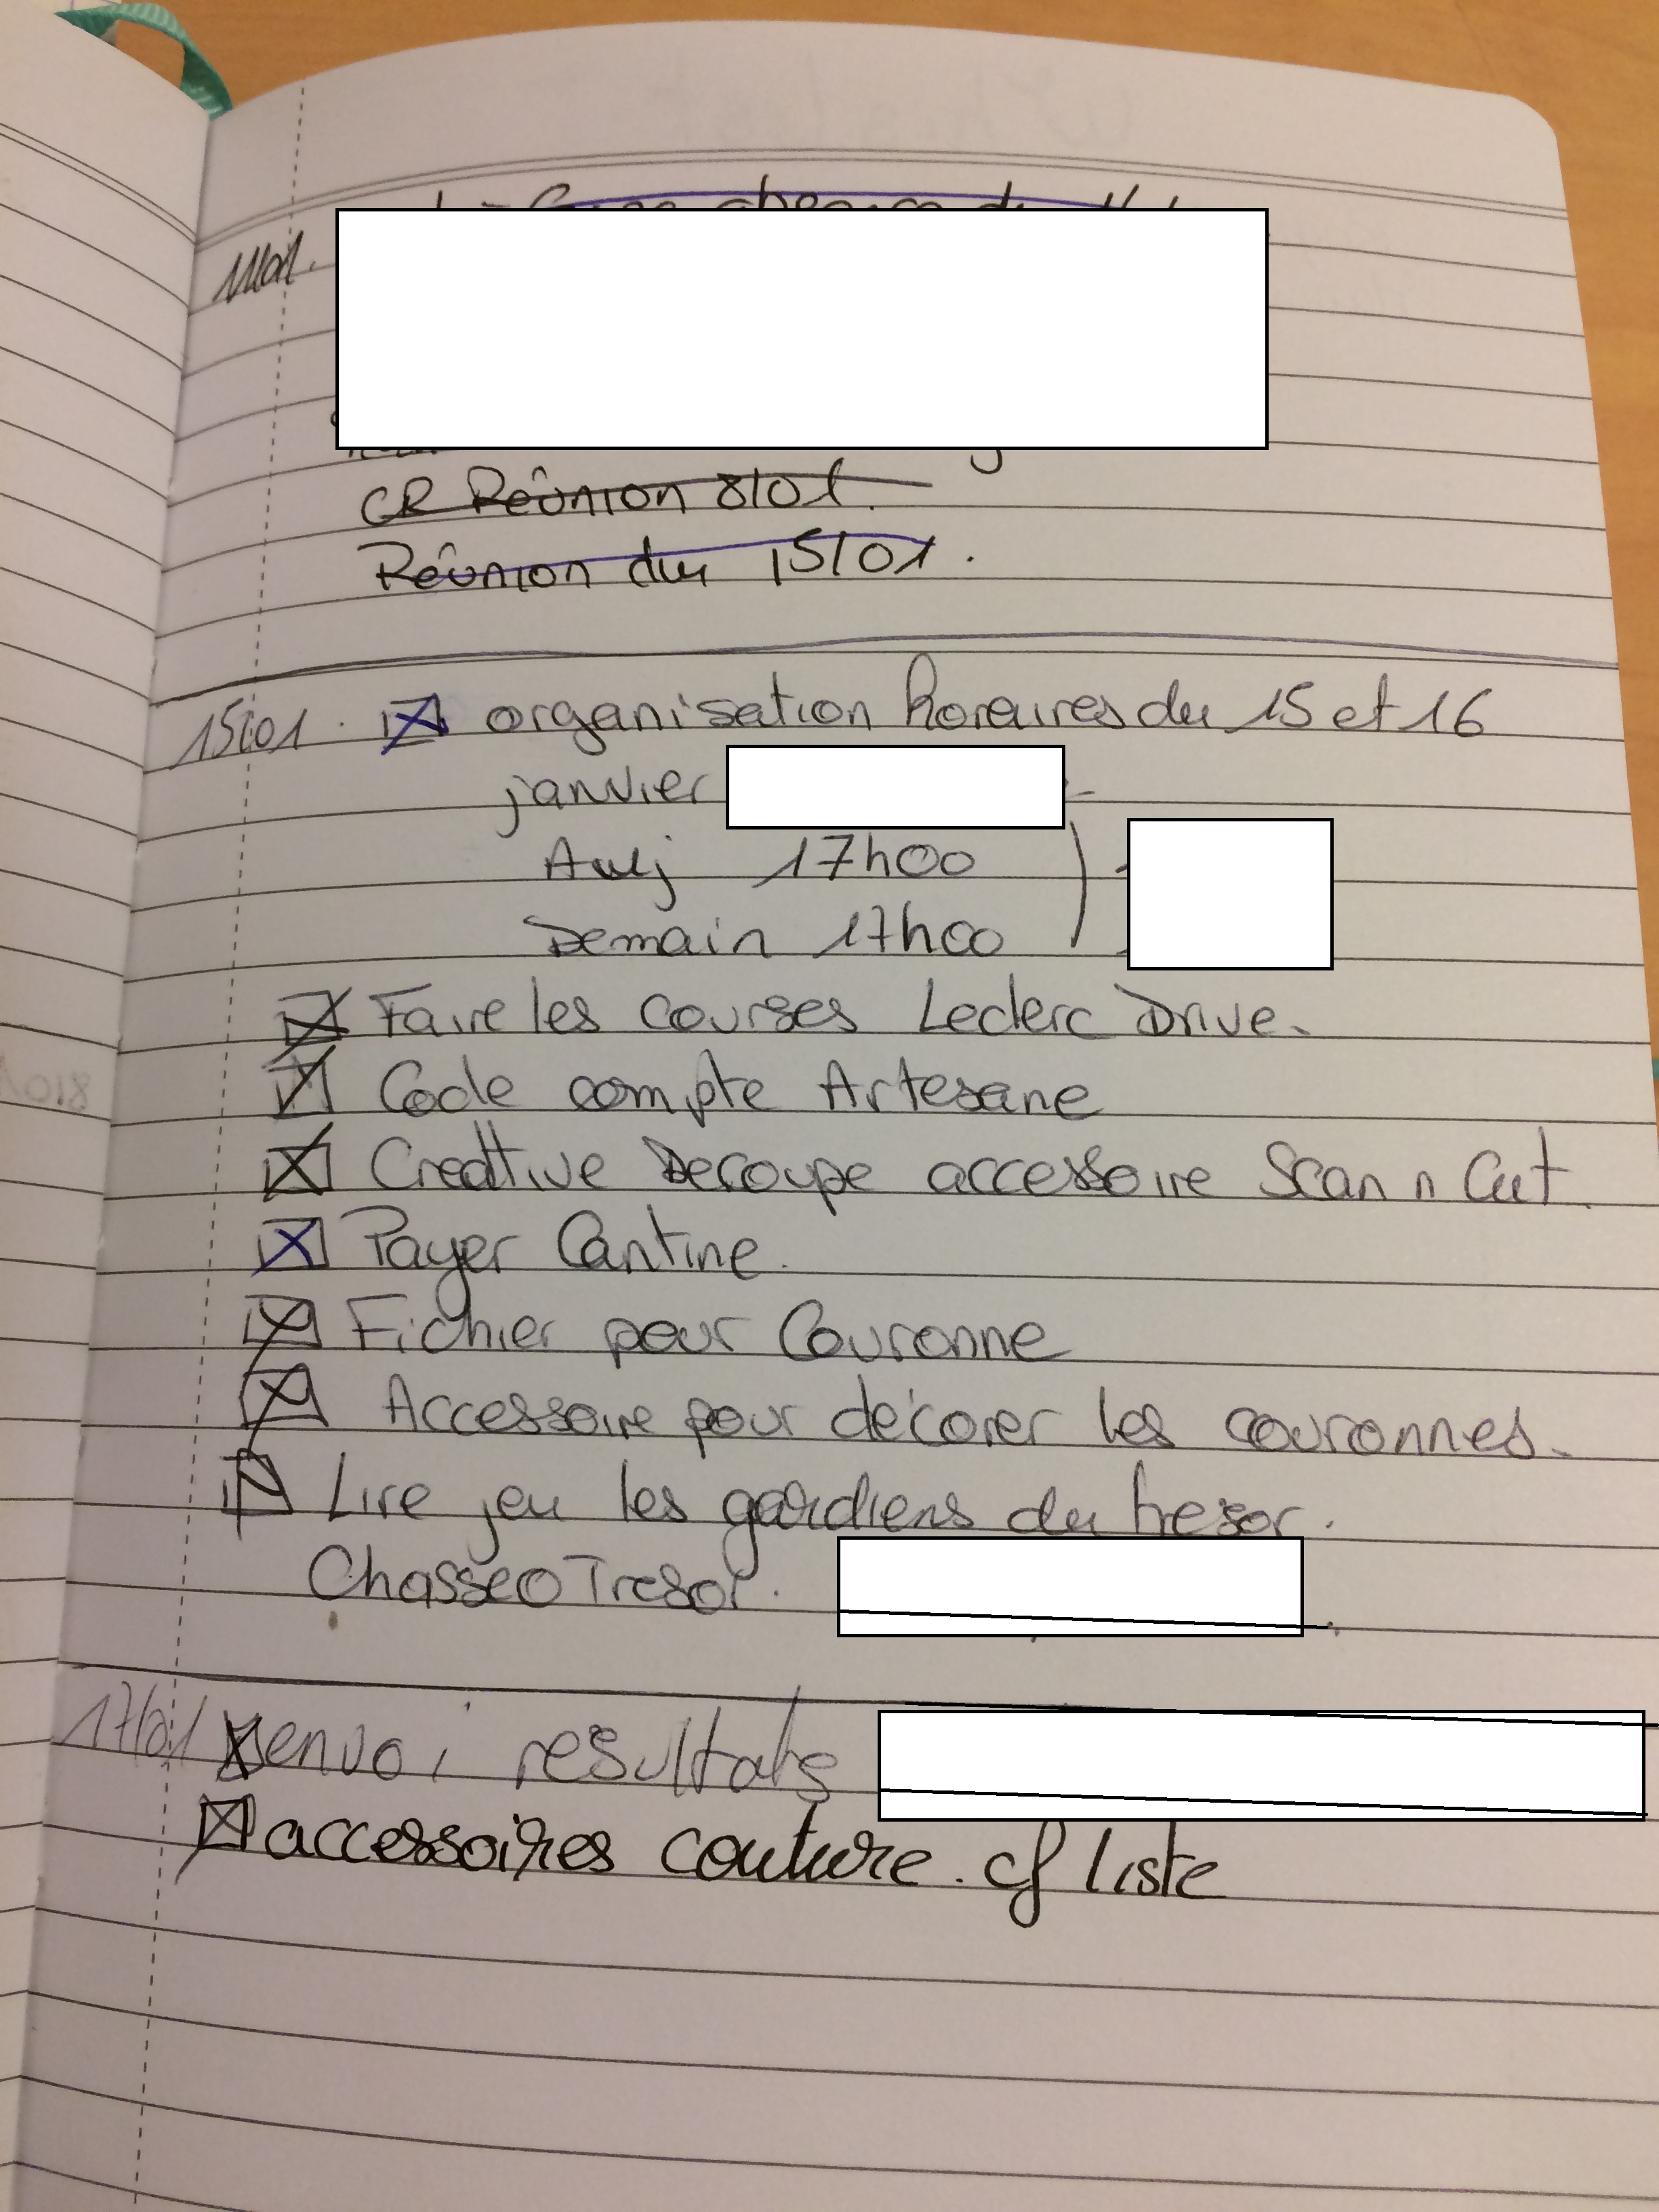 CR Réunion 8/01.
Réunion du 15/01.
15/01. organisation horaires du 15 et 16
janvier
Auj 17h00
Demain 17h00
Faire les courses Leclerc Drive.
Code compte Artesane
Creative Decoupe accessoire Scan n Cut.
Payer Cantine.
Fichier pour Couronne
Accessoire pour décorer les couronnes.
Lire jeu les gardiens du tresor.
ChasseOTresor.
17/01 envoi resultats
accessoires couture. cf liste